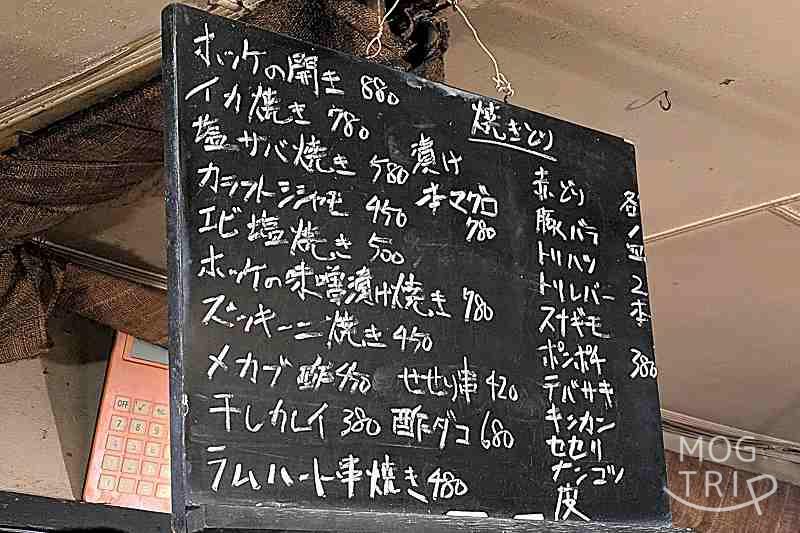 ホッケの開き 880
イカ焼き 780
塩サバ焼き 580
カラフトシシャモ 450
エビ塩焼き 500
ホッケの味噌漬け焼き 780
ズッキーニ焼き 450
メカブ酢 450 せせり串 420
干しカレイ 380 酢ダコ 680
ラムハート串焼き 480
漬け
本マグロ
780
焼きどり
赤どり
豚バラ
トリハツ
トリレバー
スナギモ
ポンポチ
テバサキ
キンカン
セセリ
ナンコツ
皮
各一皿2本 380
OFF
7 8 9
MOG
TRIP